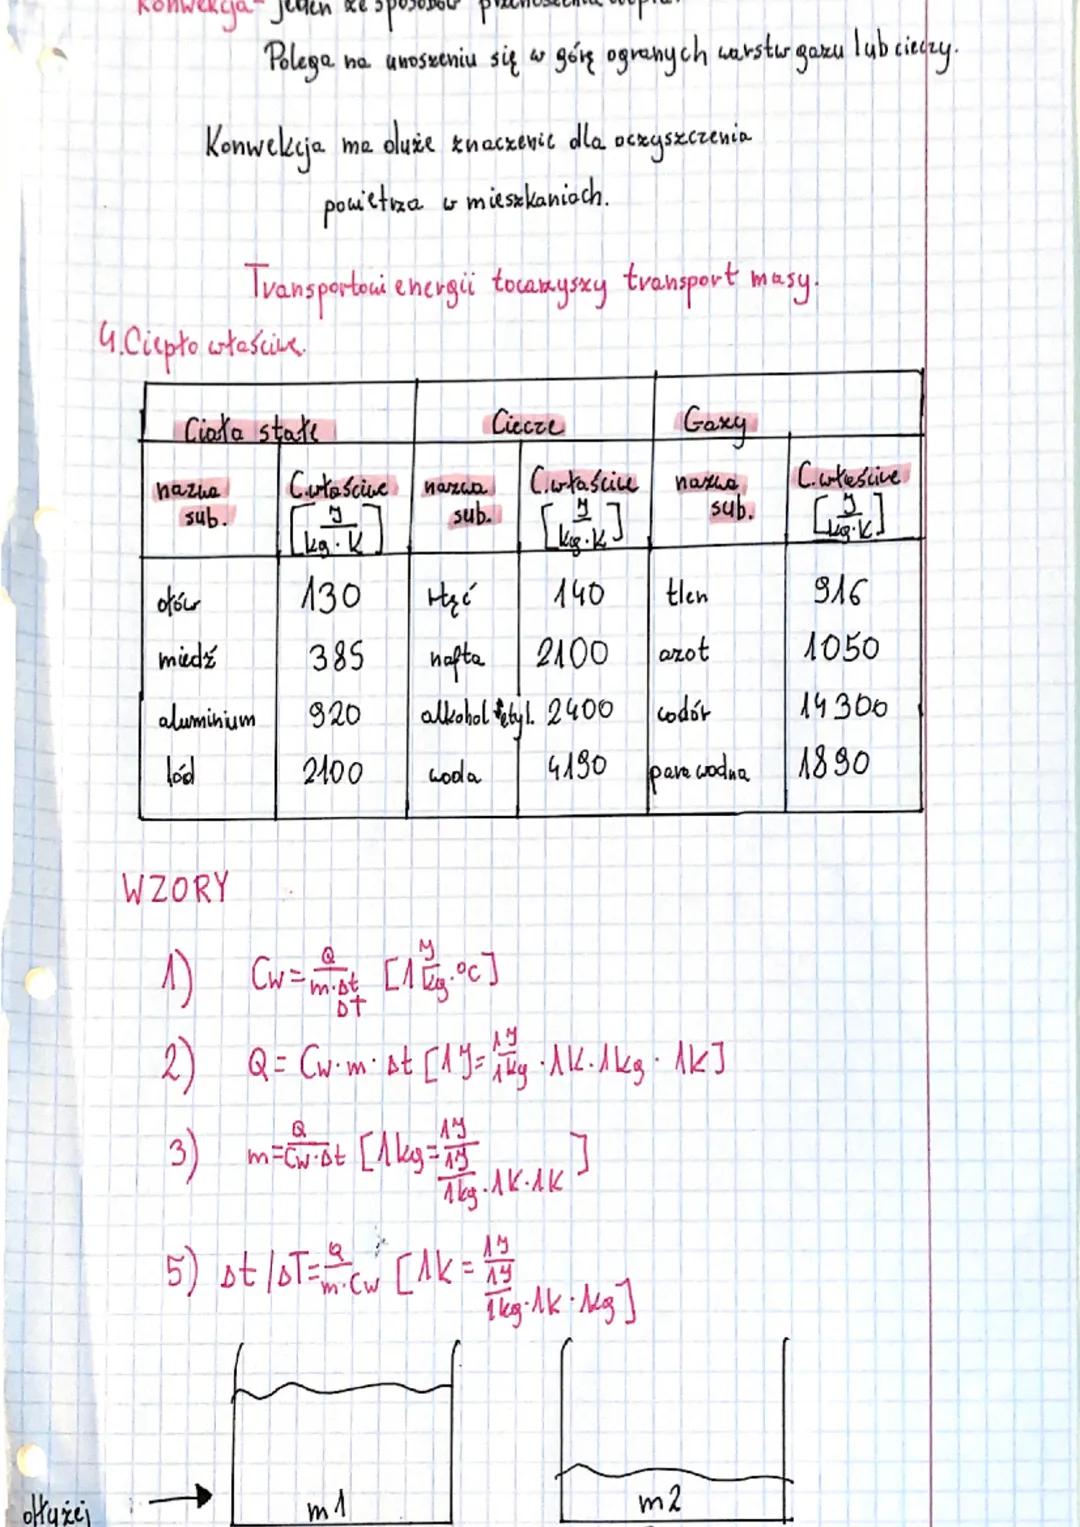 Konwekcja - jeden ze sposobów przenoszenia ciepła.
Polega na unoszeniu się w górę ogranych warstw gazu lub cieczy.
Konwekcja ma duże znaczenie dla oczyszczenia
powietrza w mieszkaniach.
Transportowi energii towarzyszy transport masy.
4. Ciepło właściwe.
Ciała stałe Ciecze Gazy
nazwa sub. C.właściwe [J/kg·K] nazwa sub. C.właściwe [J/kg·K] nazwa sub. C.właściwe [J/kg·K]
ołów 130 rtęć 140 tlen 916
miedź 385 nafta 2100 azot 1050
aluminium 920 alkohol etyl. 2400 wodór 14300
lód 2100 woda 4190 para wodna 1890
WZORY
1) Cw = Q/m·Δt ΔT [1 J/kg·°C]
2) Q = Cw·m·Δt [1J = 1J/1kg·1K·1kg·1K]
3) m = Q/Cw·Δt [1kg = 1J/1J/1kg·1K·1K]
5) Δt/ΔT = Q/m·Cw [1K = 1J/1J/1kg·1K·1kg]
dłużej → m1 m2